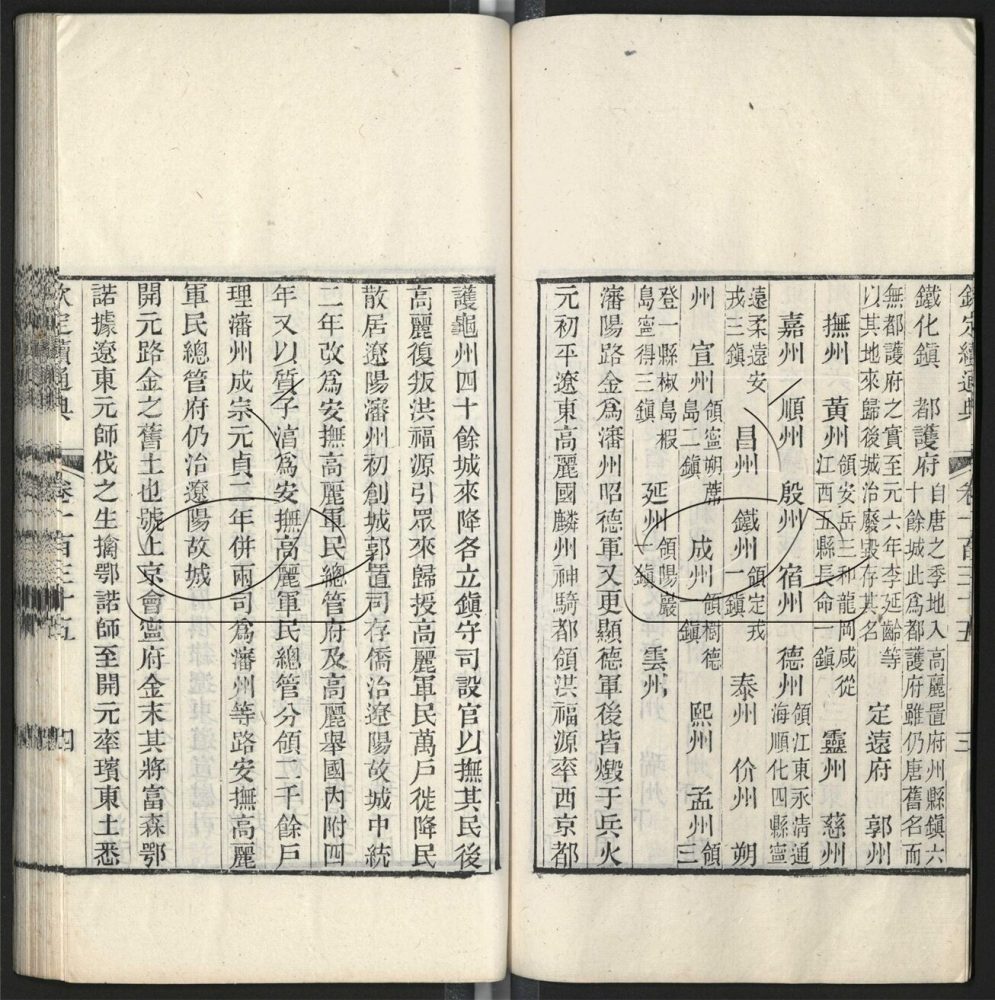 欽定續通典 卷一百三十五 三
鐵化鎮 都護府自唐之季地入高麗置府州縣鎮六十餘城此爲都護府雖仍唐舊名而
無都護府之實至元六年李延齡等以其地來歸後城治廢毀存其名 定遠府 郭州
撫州 黃州領安岳三和龍岡咸從江西五縣長命一鎮 靈州 慈州
嘉州 順州 殷州 宿州 德州領江東永清通海順化四縣寧
遠柔遠安戎三鎮 昌州 鐵州領定戎一鎮 泰州 价州 朔
州 宣州領寧朔蓆島二鎮 成州領樹德鎮 熙州 孟州領三
登一縣椒島椵島寧得三鎮 延州領陽巖一鎮 雲州
瀋陽路金爲瀋州昭德軍又更顯德軍後皆燬于兵火
元初平遼東高麗國麟州神騎都領洪福源率西京都
護龜州四十餘城來降各立鎮守司設官以撫其民後
高麗復叛洪福源引眾來歸授高麗軍民萬戶徙降民
散居遼陽瀋州初創城郭置司存僑治遼陽故城中統
二年改爲安撫高麗軍民總管府及高麗舉國內附四
年又以質子淯爲安撫高麗軍民總管分領二千餘戶
理瀋州成宗元貞二年併兩司爲瀋州等路安撫高麗
軍民總管府仍治遼陽故城
開元路金之舊土也號上京會寧府金末其將富森鄂
諾據遼東元師伐之生擒鄂諾師至開元率璸東土悉
欽定續通典 卷一百三十五 四